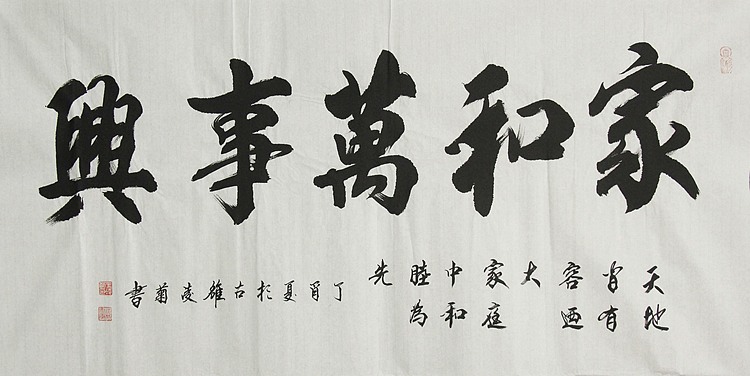 家和萬事興
天地皆有容迺大家庭中和睦為先
丁酉夏於古凌菊書